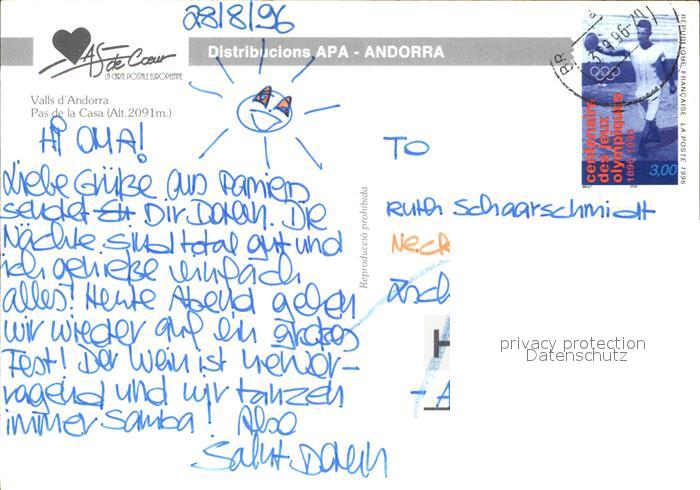 28/8/96
As de Cœur
LA CARTE POSTALE EUROPEENNE
Distribucions APA - ANDORRA
Valls d'Andorra
Pas de la Casa (Alt.2091m.)
Hi OMA!
Liebe Grüße aus Pamiers
sendet Dir Doreh. Die
Nächte sind total gut und
ich genieße einfach
alles! Heute Abend gehen
wir wieder auf ein großes
Fest! Der Wein ist hervor-
ragend und wir tanzen
immer Samba! Also
Salut Doreh
Reproducció prohibida
TO
Ruth Schaarschmidt
Neck
Zsch
H
- A
privacy protection
Datenschutz
centenaire
des jeux
olympiques
1896-1996
3,00
REPUBLIQUE FRANÇAISE LA POSTE 1996